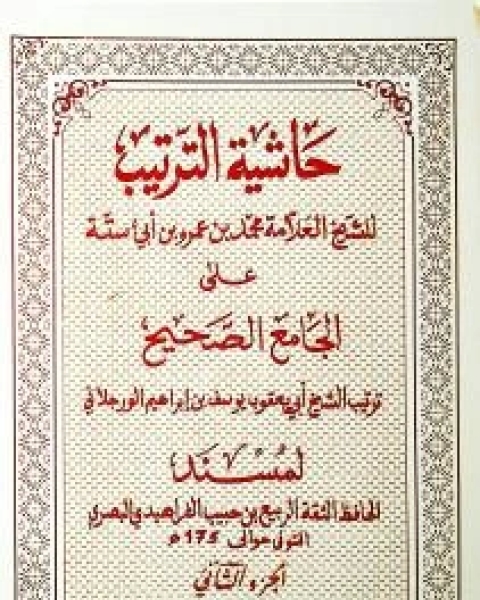 حاشية الترتيب
للشيخ العلامة محمد بن عمرو بن أبي ستة
على
الجامع الصحيح
ترتيب الشيخ أبي يعقوب يوسف بن إبراهيم الورجلاني
لمسند
الحافظ الثقة الربيع بن حبيب الفراهيدي البصري
المتوفى حوالى ١٧٥ هـ
الجزء الثاني